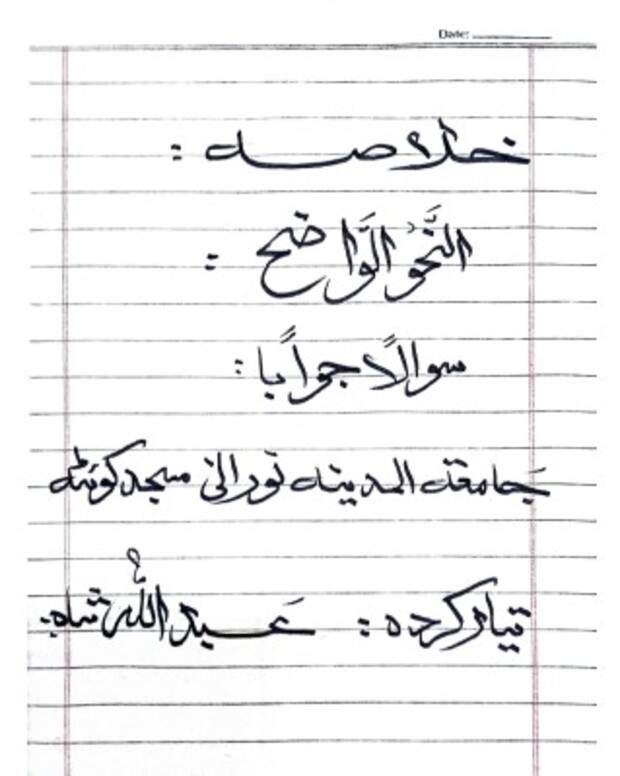 Date:
خلاصہ :
النَّحوُ الوَّاضح :
سوالاً جواباً :
جامعۃ المدینہ نورانی مسجد کوئٹہ
تیار کردہ : عبید اللہ شاہ